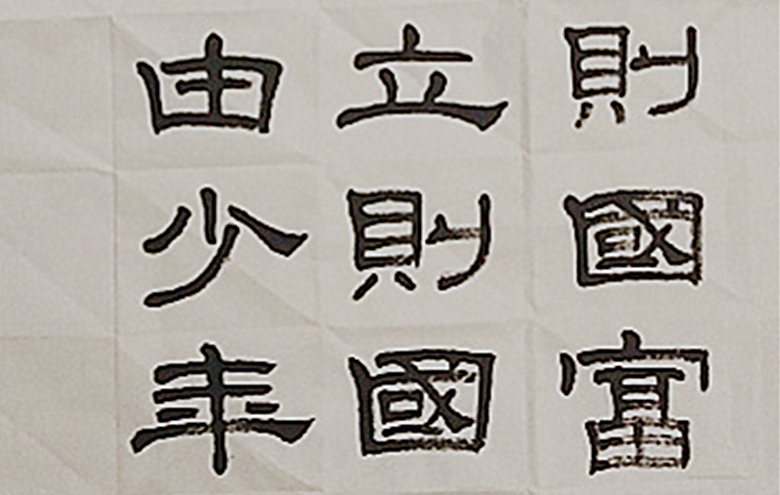 則國富
立則國
由少年